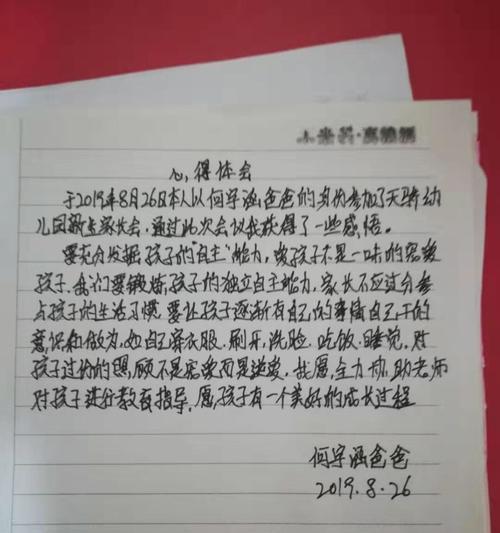 心得体会
于2019年8月26日本人以何宇涵爸爸的身份参加了天骄幼
儿园新生家长会,通过此次会议我获得了一些感悟。
要充分发掘孩子的"自主"能力,爱孩子不是一味的宠爱
孩子,我们要锻炼孩子的独立自主能力,家长不应过分
点孩子的生活习惯,要让孩子逐渐有自己的事情自己干的
意识和做为,如自己穿衣服、刷牙、洗脸、吃饭、睡觉,对
孩子过份的照顾不是宠爱而是溺爱,我愿全力协助老师
对孩子进行教育指导,愿孩子有一个美好的成长过程
何宇涵爸爸
2019.8.26